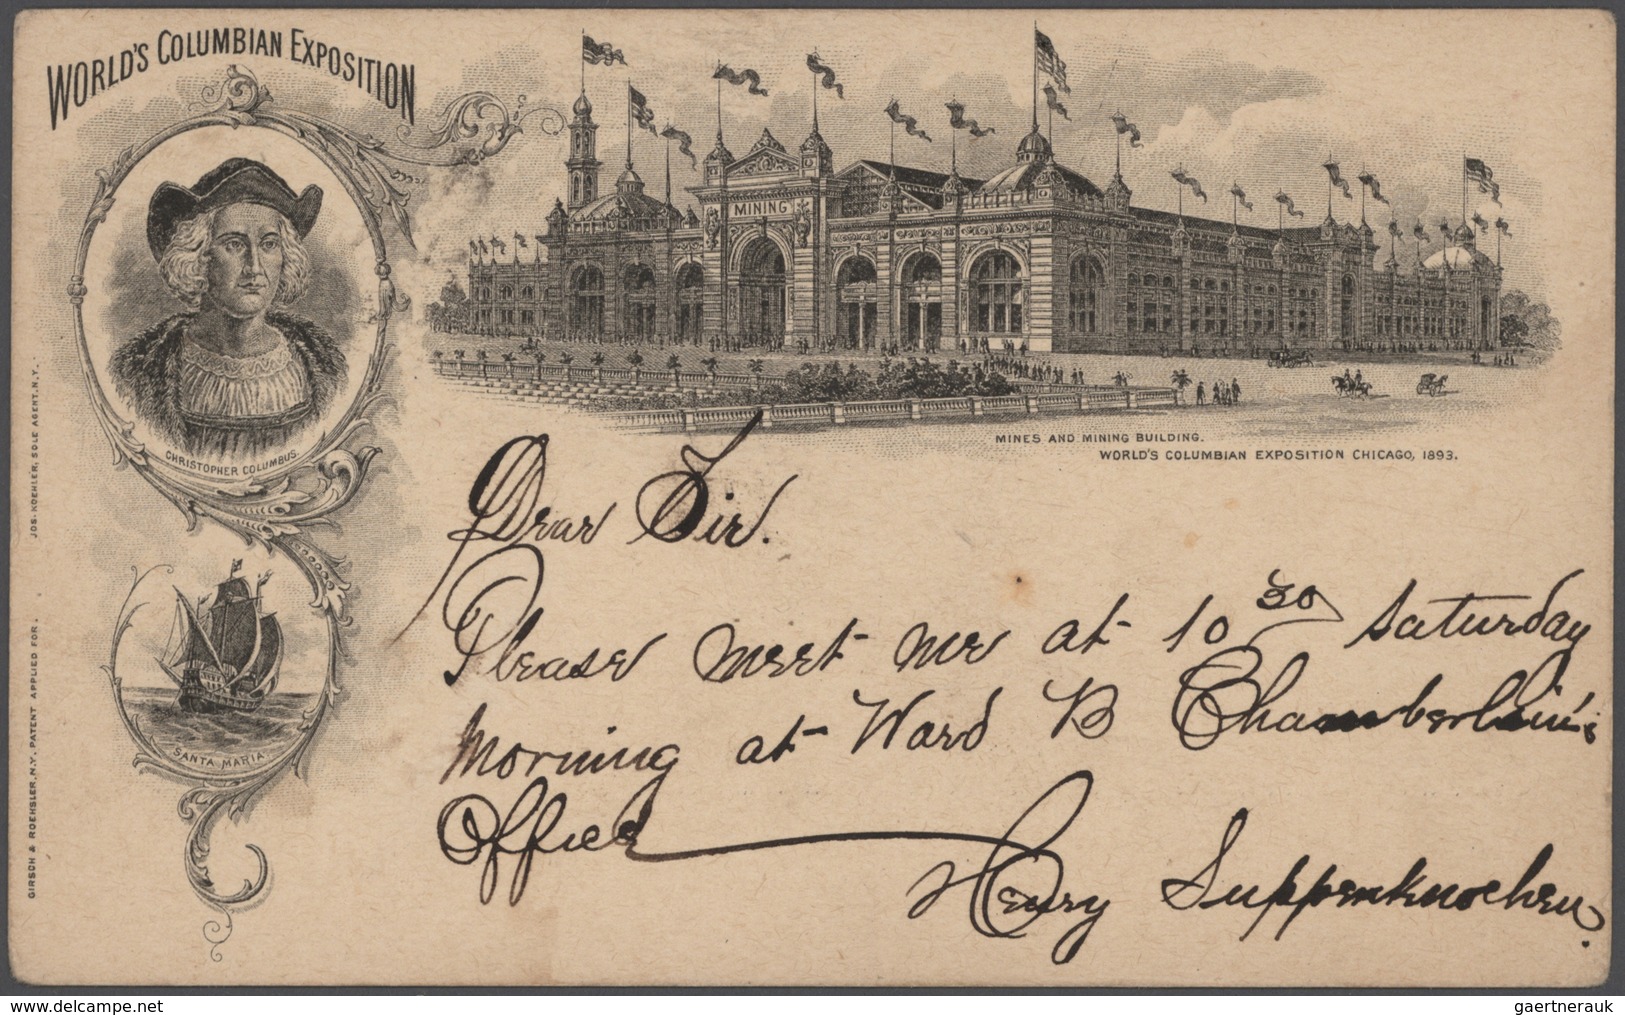 WORLD'S COLUMBIAN EXPOSITION
MINING
CHRISTOPHER COLUMBUS.
MINES AND MINING BUILDING.
WORLD'S COLUMBIAN EXPOSITION CHICAGO, 1893.
SANTA MARIA
JOS. KOEHLER, SOLE AGENT, N.Y.
GIRSCH & ROEHSLER, N.Y. PATENT APPLIED FOR.
Dear Sir.
Please meet me at 10 30 Saturday
Morning at Ward B Chamberlain's
Office
Henry Suppenknochen.
www.delcampe.net
gaertnerauk